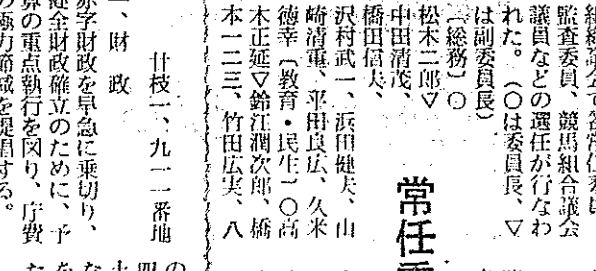 監査委員、競馬組合議会
議員などの選任が行なわ
れた。（○は委員長、▽
は副委員長）
〔総務〕○
松木二郎▽
中田清茂、
橋田信夫、
沢村武一、浜田健夫、山
崎清重、平田良広、久米
徳幸〔教育・民生〕○高
木正延▽鈴江潤次郎、橋
本一二三、竹田広実、八
常任
廿枝一、九一一番地
一、財政
赤字財政を早急に乗切り、
健全財政確立のために、予
算の重点執行を図り、庁費
の極力節減を提唱する。